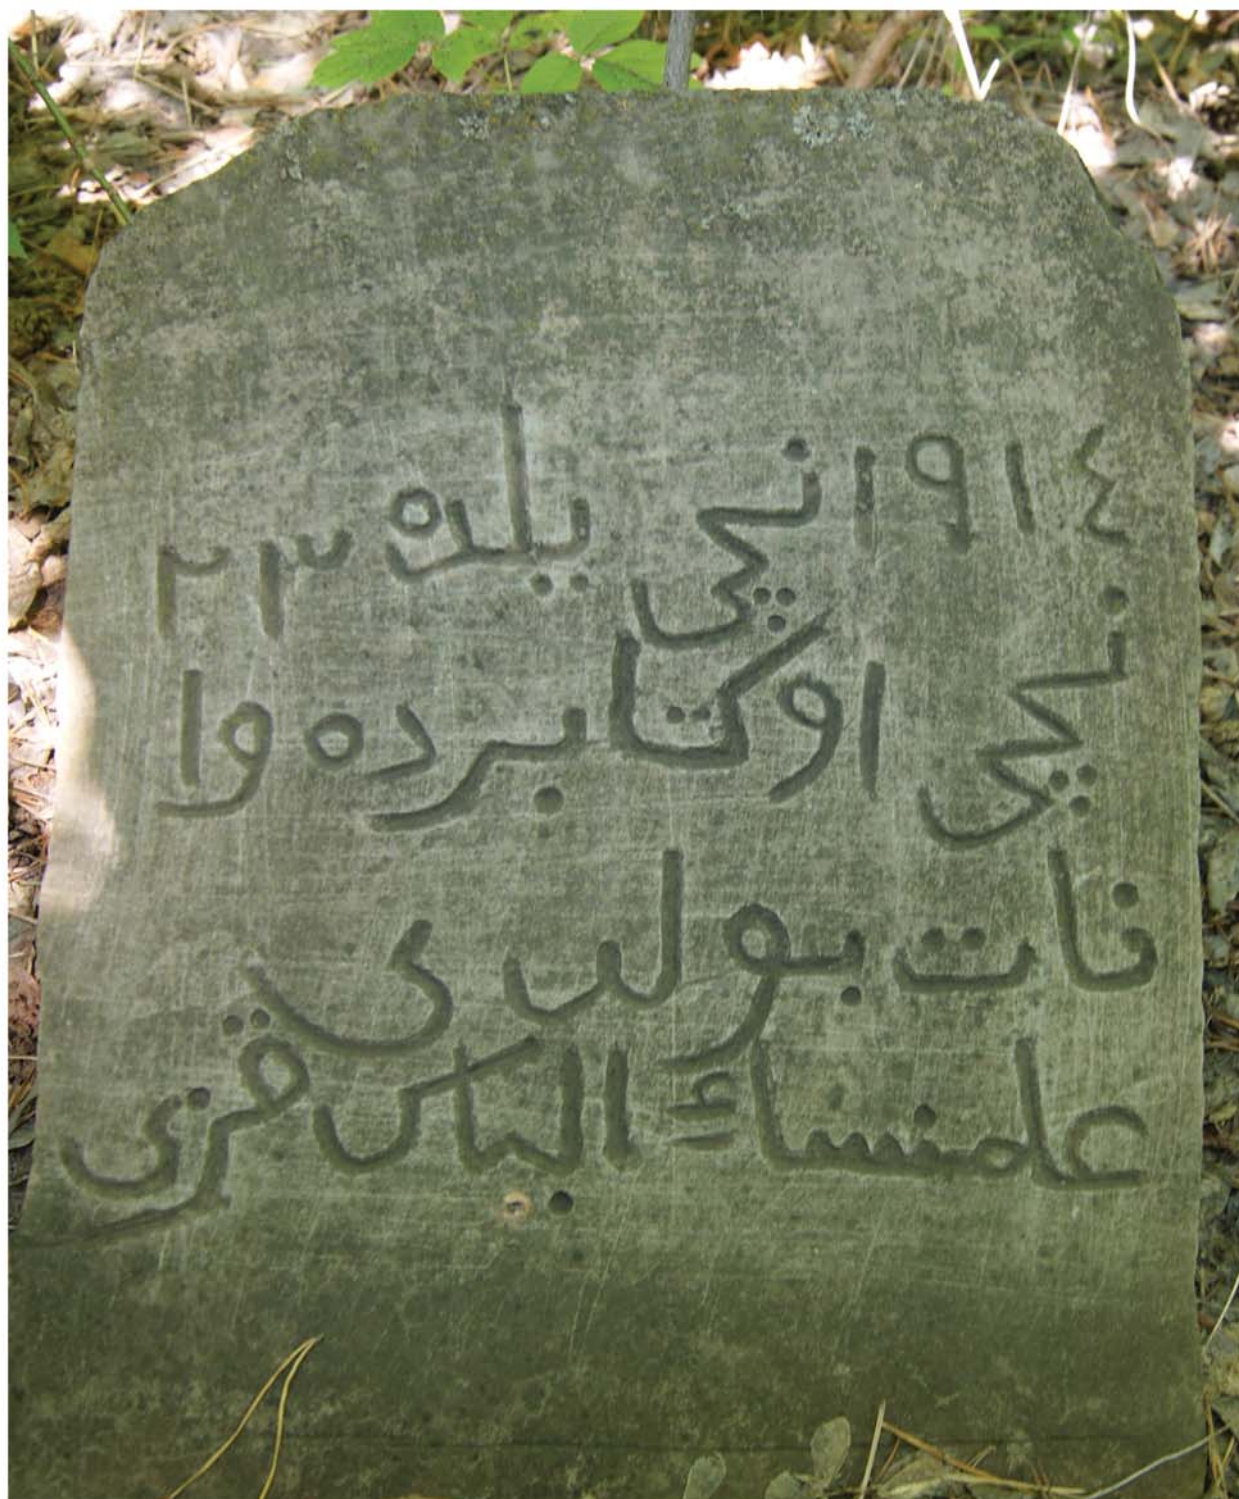 ١٩١٤ نچی یلده ٢٣
نچی اوكتابرده وا
فات بولدی
علمنساء الیاس قزی